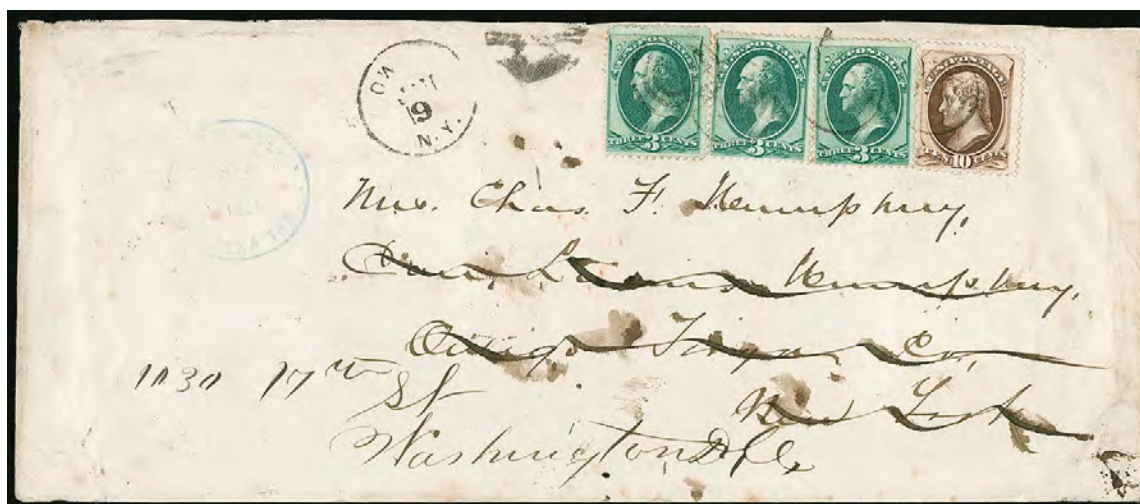 OW
9
N.Y.
U.S. POSTAGE
THREE 3 CENTS
U.S. POSTAGE
THREE 3 CENTS
U.S. POSTAGE
THREE 3 CENTS
U.S. POSTAGE
TEN 10 CENTS
Chas. F. Humphrey,
Humphrey,
Tioga Co,
New York
1030 17th
St
Washington D.C.